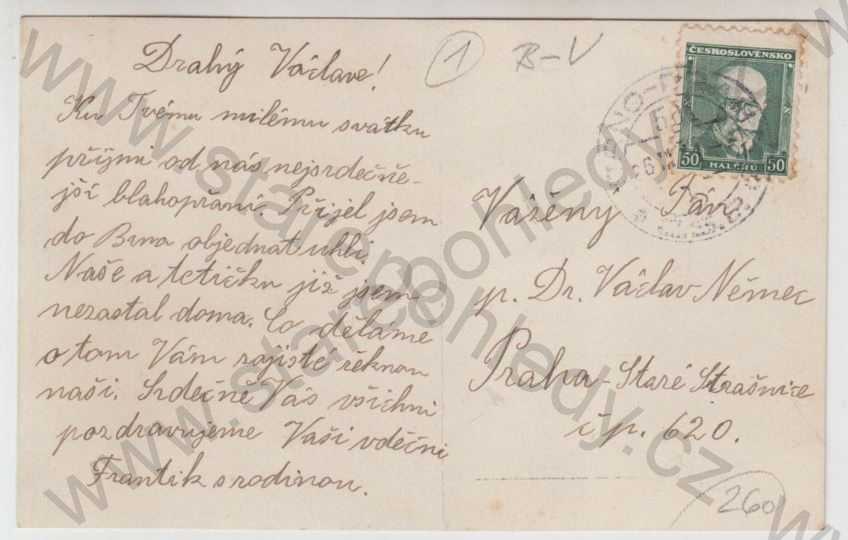 Drahý Václave!
Ku Tvému milému svátku
přijmi od nás nejsrdečně-
jší blahopřání. Přijel jsem
do Brna objednat uhlí.
Naše a tetičku již jsem
nezastal doma. Co děláme
o tom Vám zajisté řeknou
naši. Srdečně Vás všichni
pozdravujeme Vaši vděční
Frantík s rodinou.
1
B-V
ČESKOSLOVENSKO
50 HALÉŘŮ 50
Vážený Pán
p. Dr. Václav Němec
Praha - Staré Strašnice
čp. 620.
260
www.starepohledy.cz